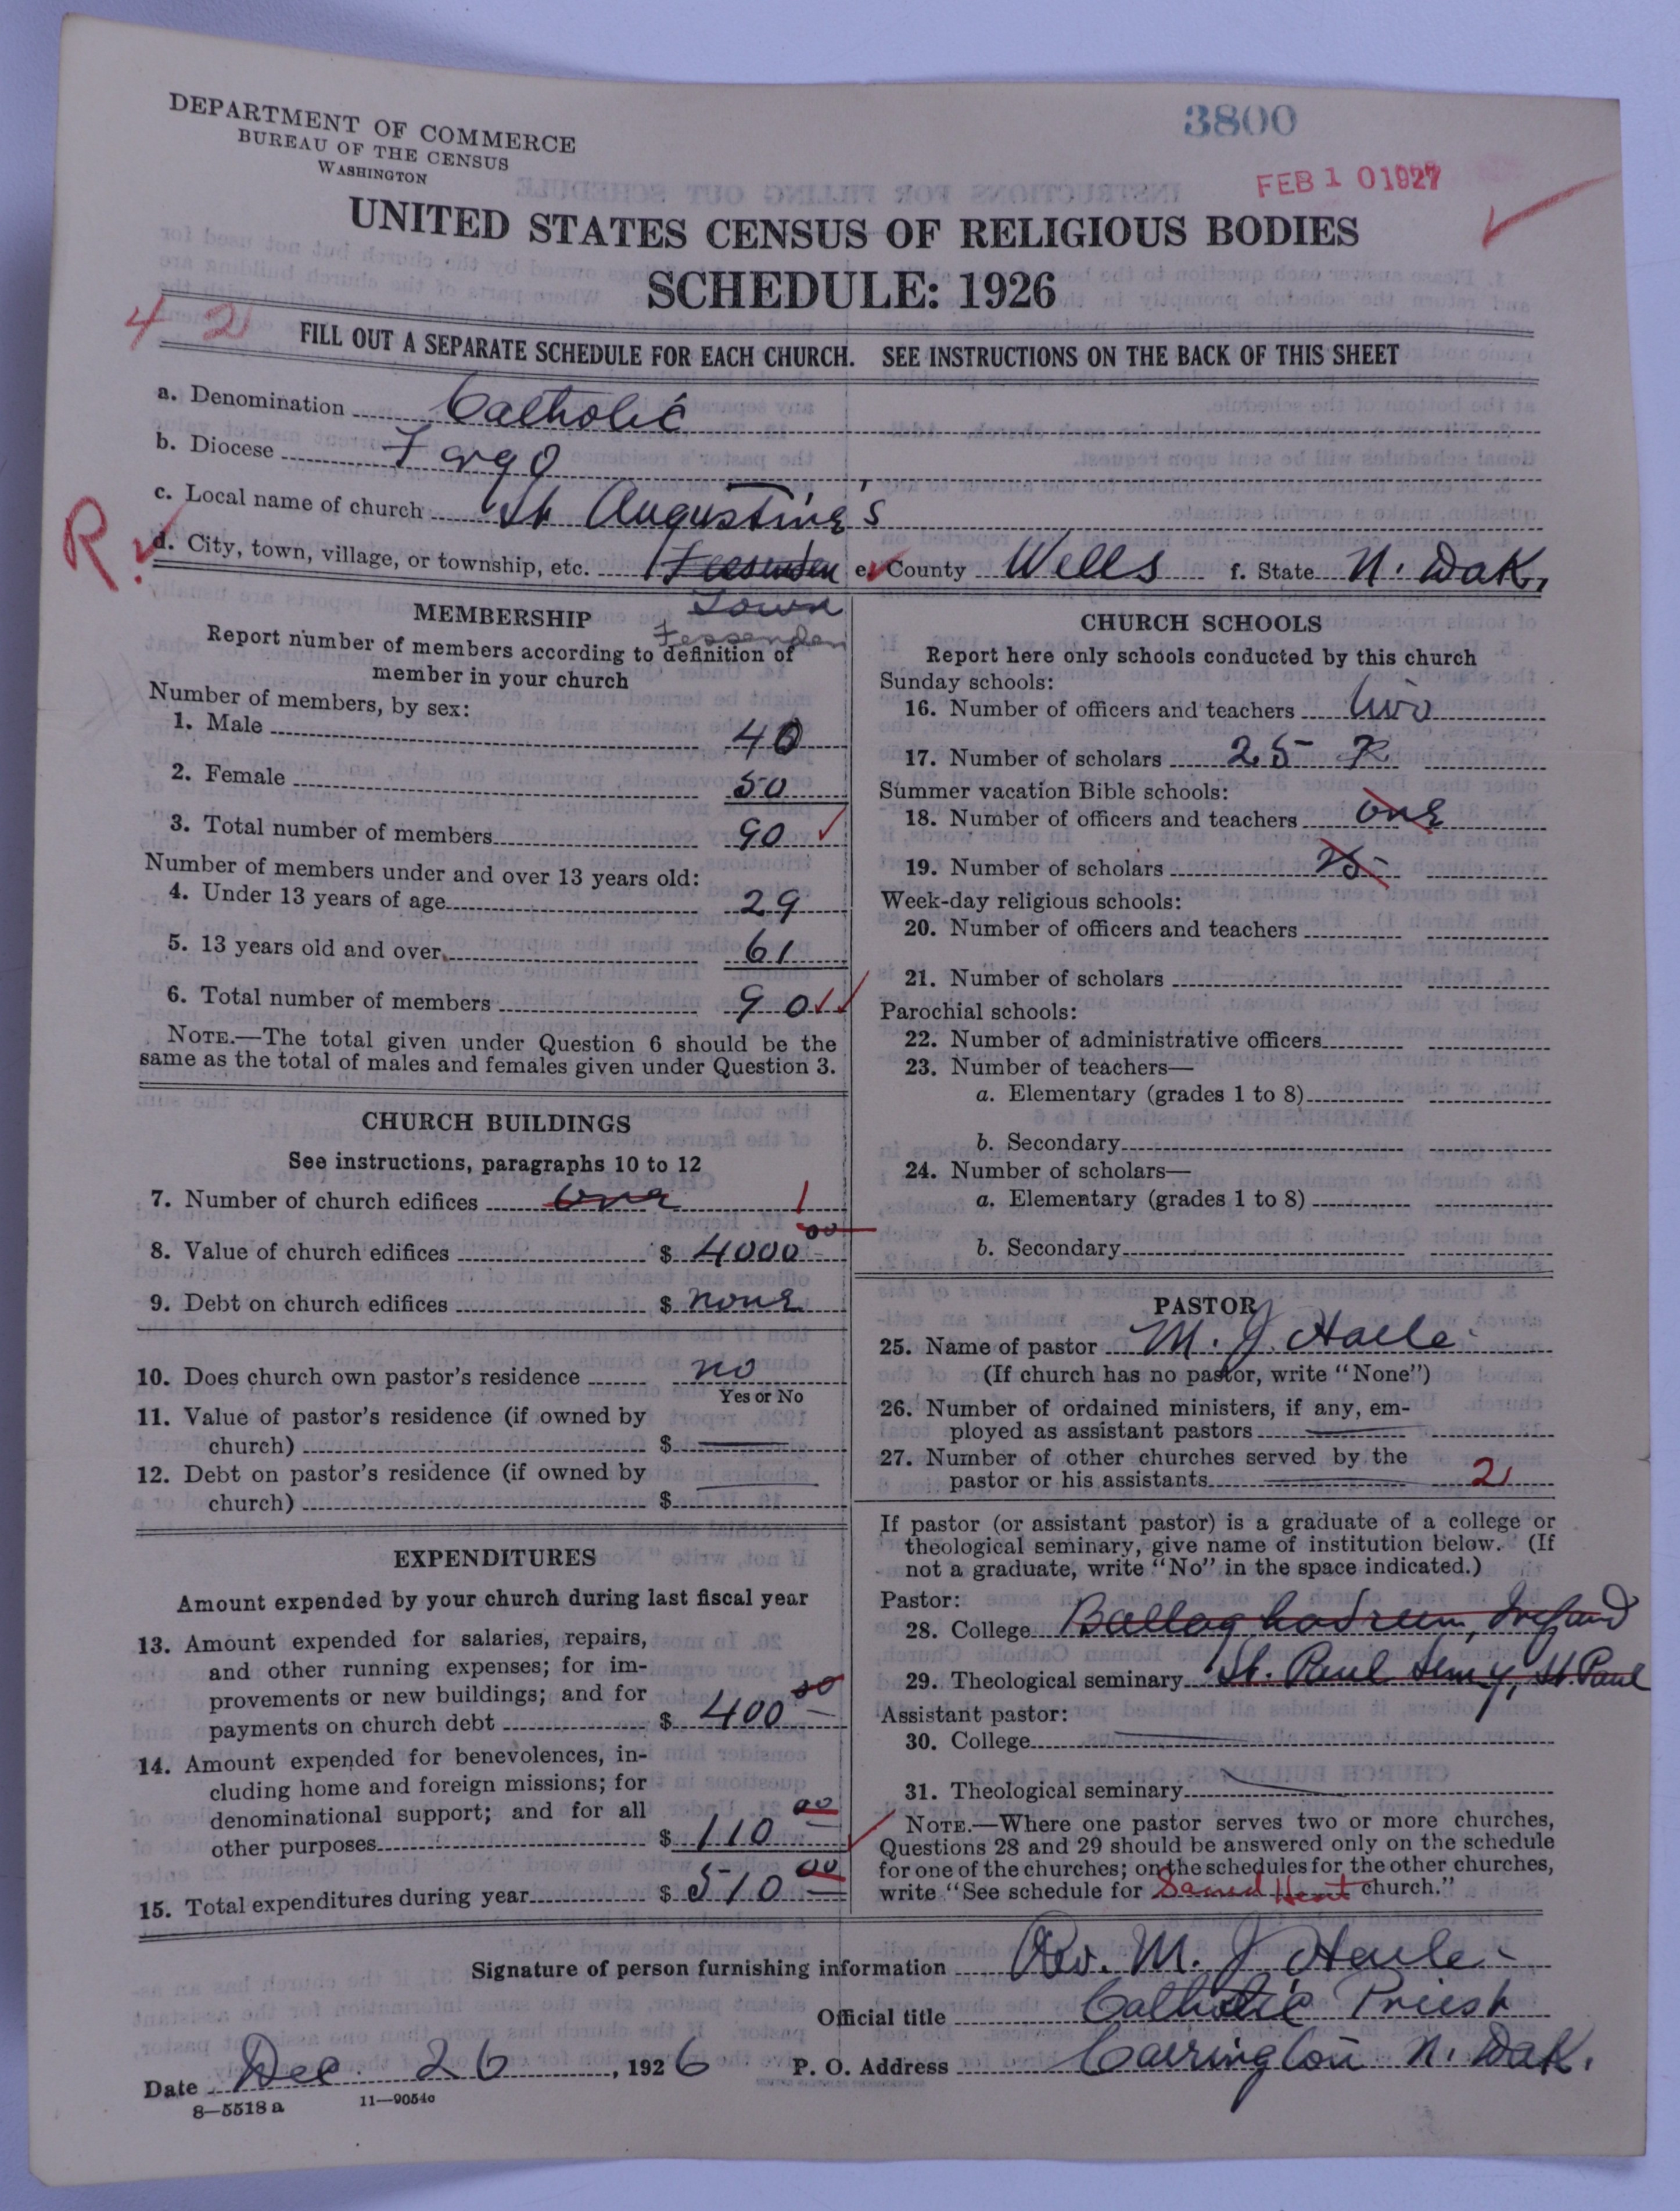 DEPARTMENT OF COMMERCE
BUREAU OF THE CENSUS
WASHINGTON
3800
FEB 10 1927
UNITED STATES CENSUS OF RELIGIOUS BODIES
SCHEDULE: 1926
4 2
FILL OUT A SEPARATE SCHEDULE FOR EACH CHURCH. SEE INSTRUCTIONS ON THE BACK OF THIS SHEET
a. Denomination Catholic
b. Diocese Fargo
c. Local name of church St Augustine's
R.
d. City, town, village, or township, etc. Fessenden e. County Wells f. State N. Dak.
Town
Fessenden
MEMBERSHIP
Report number of members according to definition of
member in your church
Number of members, by sex:
1. Male 40
2. Female 50
3. Total number of members 90
Number of members under and over 13 years old:
4. Under 13 years of age 29
5. 13 years old and over 61
6. Total number of members 90
NOTE.—The total given under Question 6 should be the
same as the total of males and females given under Question 3.
CHURCH BUILDINGS
See instructions, paragraphs 10 to 12
7. Number of church edifices one 1
8. Value of church edifices $ 4000 00
9. Debt on church edifices $ none
10. Does church own pastor's residence no
Yes or No
11. Value of pastor's residence (if owned by
church) $
12. Debt on pastor's residence (if owned by
church) $
EXPENDITURES
Amount expended by your church during last fiscal year
13. Amount expended for salaries, repairs,
and other running expenses; for im-
provements or new buildings; and for
payments on church debt $ 400 00
14. Amount expended for benevolences, in-
cluding home and foreign missions; for
denominational support; and for all
other purposes $ 110 00
15. Total expenditures during year $ 510 00
CHURCH SCHOOLS
Report here only schools conducted by this church
Sunday schools:
16. Number of officers and teachers two
17. Number of scholars 25 R
Summer vacation Bible schools:
18. Number of officers and teachers one
19. Number of scholars 25
Week-day religious schools:
20. Number of officers and teachers
21. Number of scholars
Parochial schools:
22. Number of administrative officers
23. Number of teachers—
a. Elementary (grades 1 to 8)
b. Secondary
24. Number of scholars—
a. Elementary (grades 1 to 8)
b. Secondary
PASTOR
25. Name of pastor M. J. Haile
(If church has no pastor, write "None")
26. Number of ordained ministers, if any, em-
ployed as assistant pastors
27. Number of other churches served by the
pastor or his assistants 2
If pastor (or assistant pastor) is a graduate of a college or
theological seminary, give name of institution below. (If
not a graduate, write "No" in the space indicated.)
Pastor:
28. College Ballaghadreen, Ireland
29. Theological seminary St. Paul Semy, St. Paul
Assistant pastor:
30. College
31. Theological seminary
NOTE.—Where one pastor serves two or more churches,
Questions 28 and 29 should be answered only on the schedule
for one of the churches; on the schedules for the other churches,
write "See schedule for Sacred Heart church."
Signature of person furnishing information Rev. M. J. Haile
Official title Catholic Priest
Date Dec. 26, 1926 P. O. Address Carrington N. Dak.
8—5518 a 11—9054c